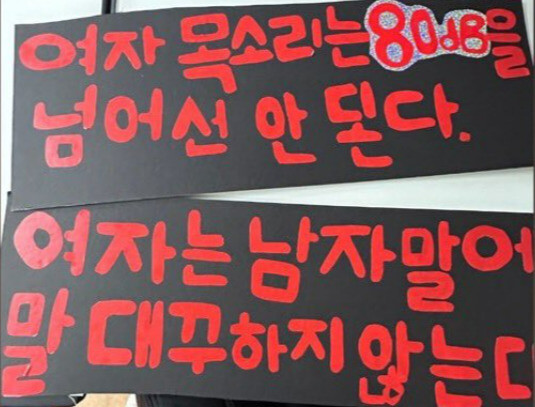 여자 목소리는 80dB을
넘어선 안 된다.
여자는 남자말어
말 대꾸하지 않는다